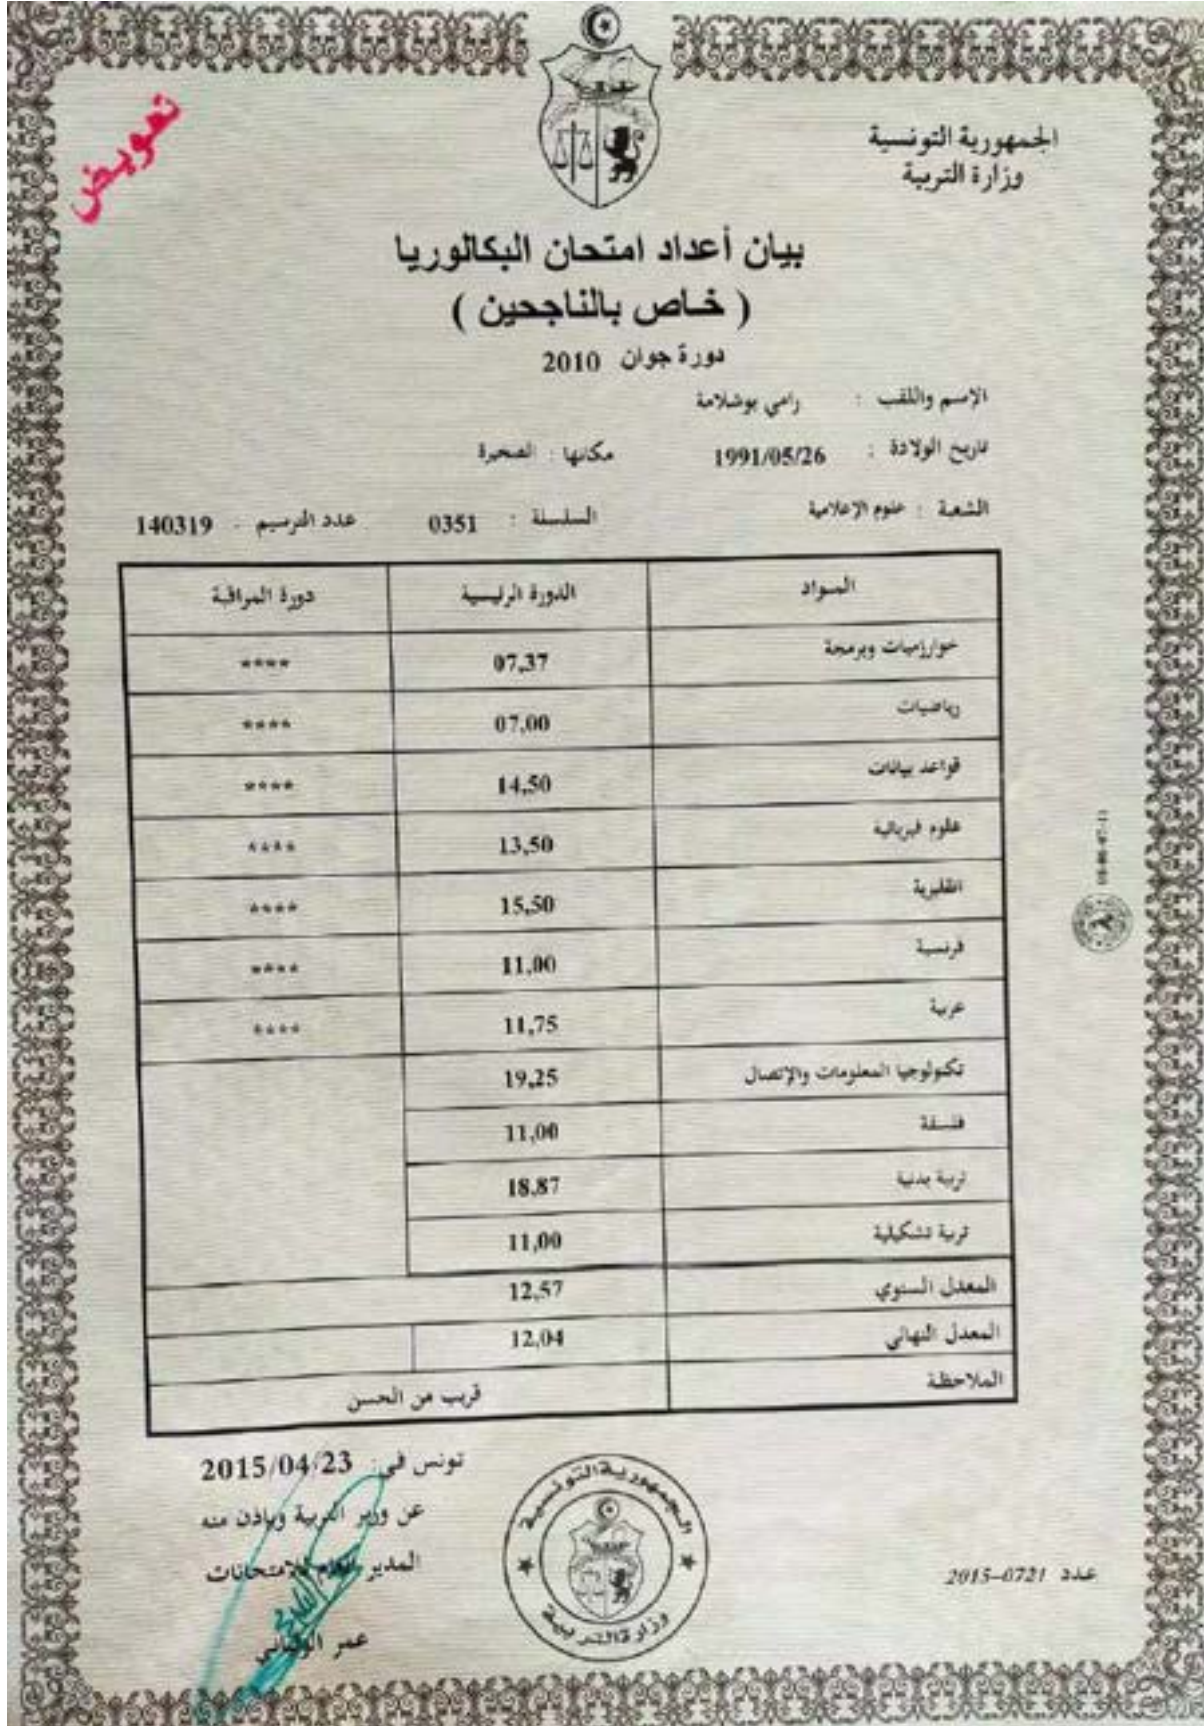 تعويض
الجمهورية التونسية
وزارة التربية
بيان أعداد امتحان البكالوريا
( خاص بالناجحين )
دورة جوان 2010
الإسم واللقب : رامي بوشلامة
تاريخ الولادة : 1991/05/26 مكانها : الصخيرة
الشعبة : علوم الإعلامية السلسلة : 0351 عدد الترسيم : 140319
المـواد الدورة الرئيسية دورة المراقبة
خوارزميات وبرمجة 07,37 ****
رياضيات 07,00 ****
قواعد بيانات 14,50 ****
علوم فيزيائية 13,50 ****
انقليزية 15,50 ****
فرنسية 11,00 ****
عربية 11,75 ****
تكنولوجيا المعلومات والإتصال 19,25
فلسفة 11,00
تربية بدنية 18,87
تربية تشكيلية 11,00
المعدل السنوي 12,57
المعدل النهائي 12,04
الملاحظة قريب من الحسن
تونس في: 2015/04/23
عن وزير التربية وبإذن منه
المدير العام للامتحانات
عمر
الجمهورية التونسية
وزارة التربية
عدد 0721-2015